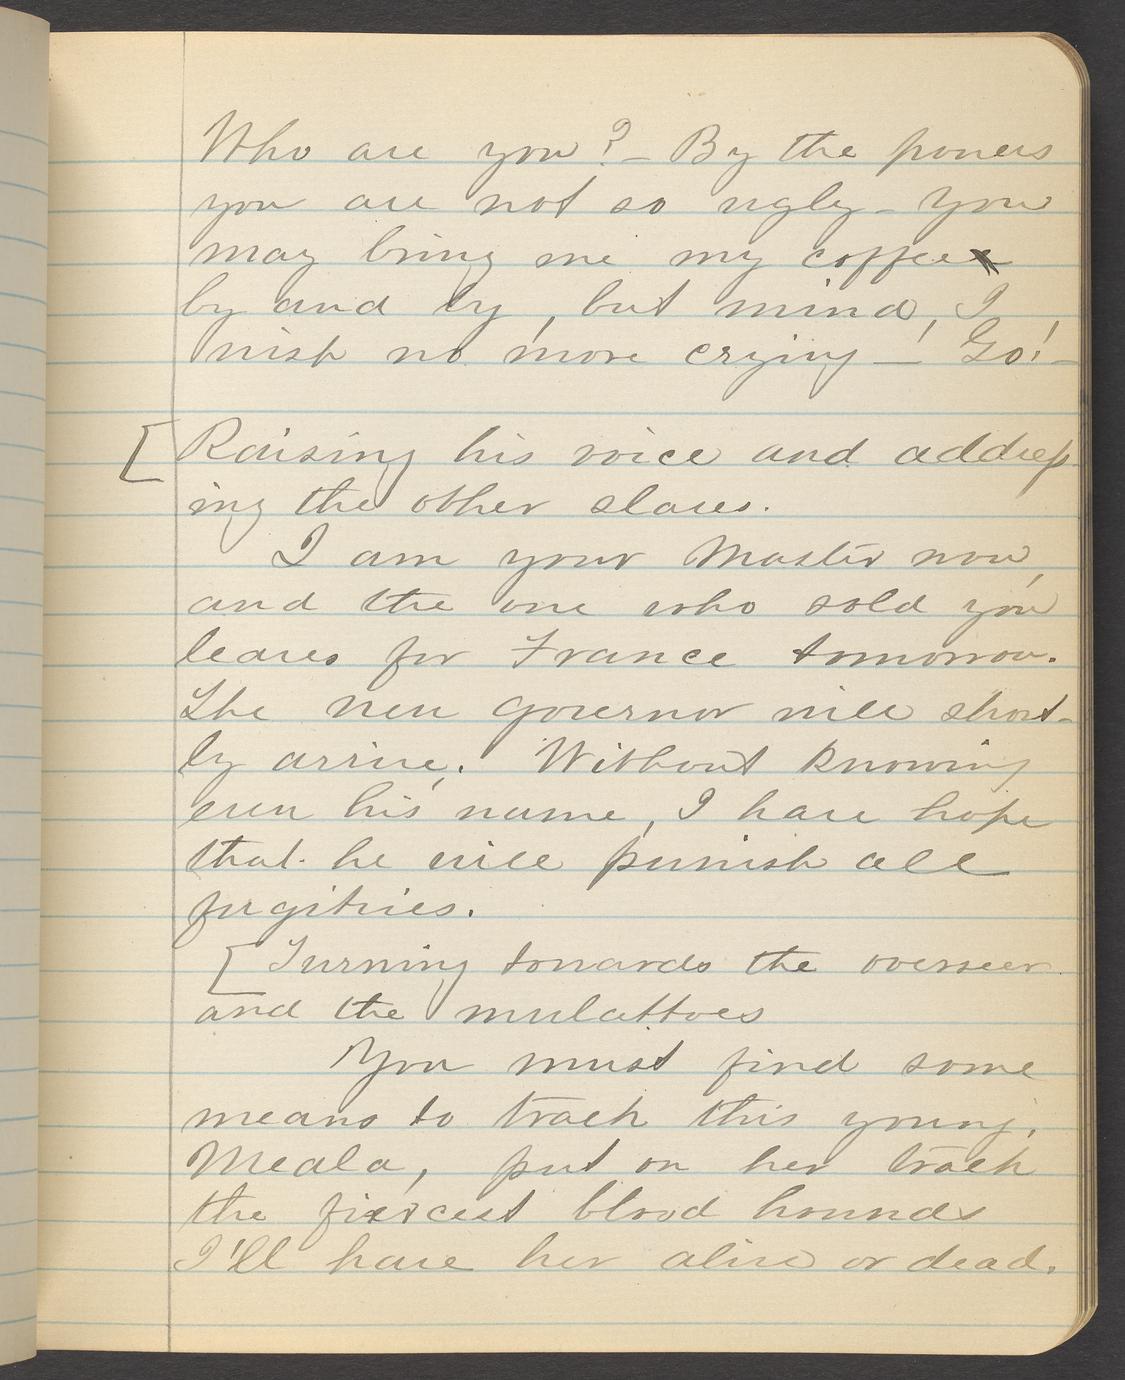 Who are you? – By the powers
you are not so ugly – You
may bring me my coffee
by and by, but mind, I
wish no more crying – Go! –
[Raising his voice and address
ing the other slaves.
I am your Master now,
and the one who sold you
leaves for France tomorrow.
The new governor will short-
ly arrive. Without knowing
even his name, I have hope
that he will punish all
fugitives.
[Turning towards the overseer
and the mulattoes
You must find some
means to track this young
Meala, put on her track
the fiercest blood hounds
I'll have her alive or dead.